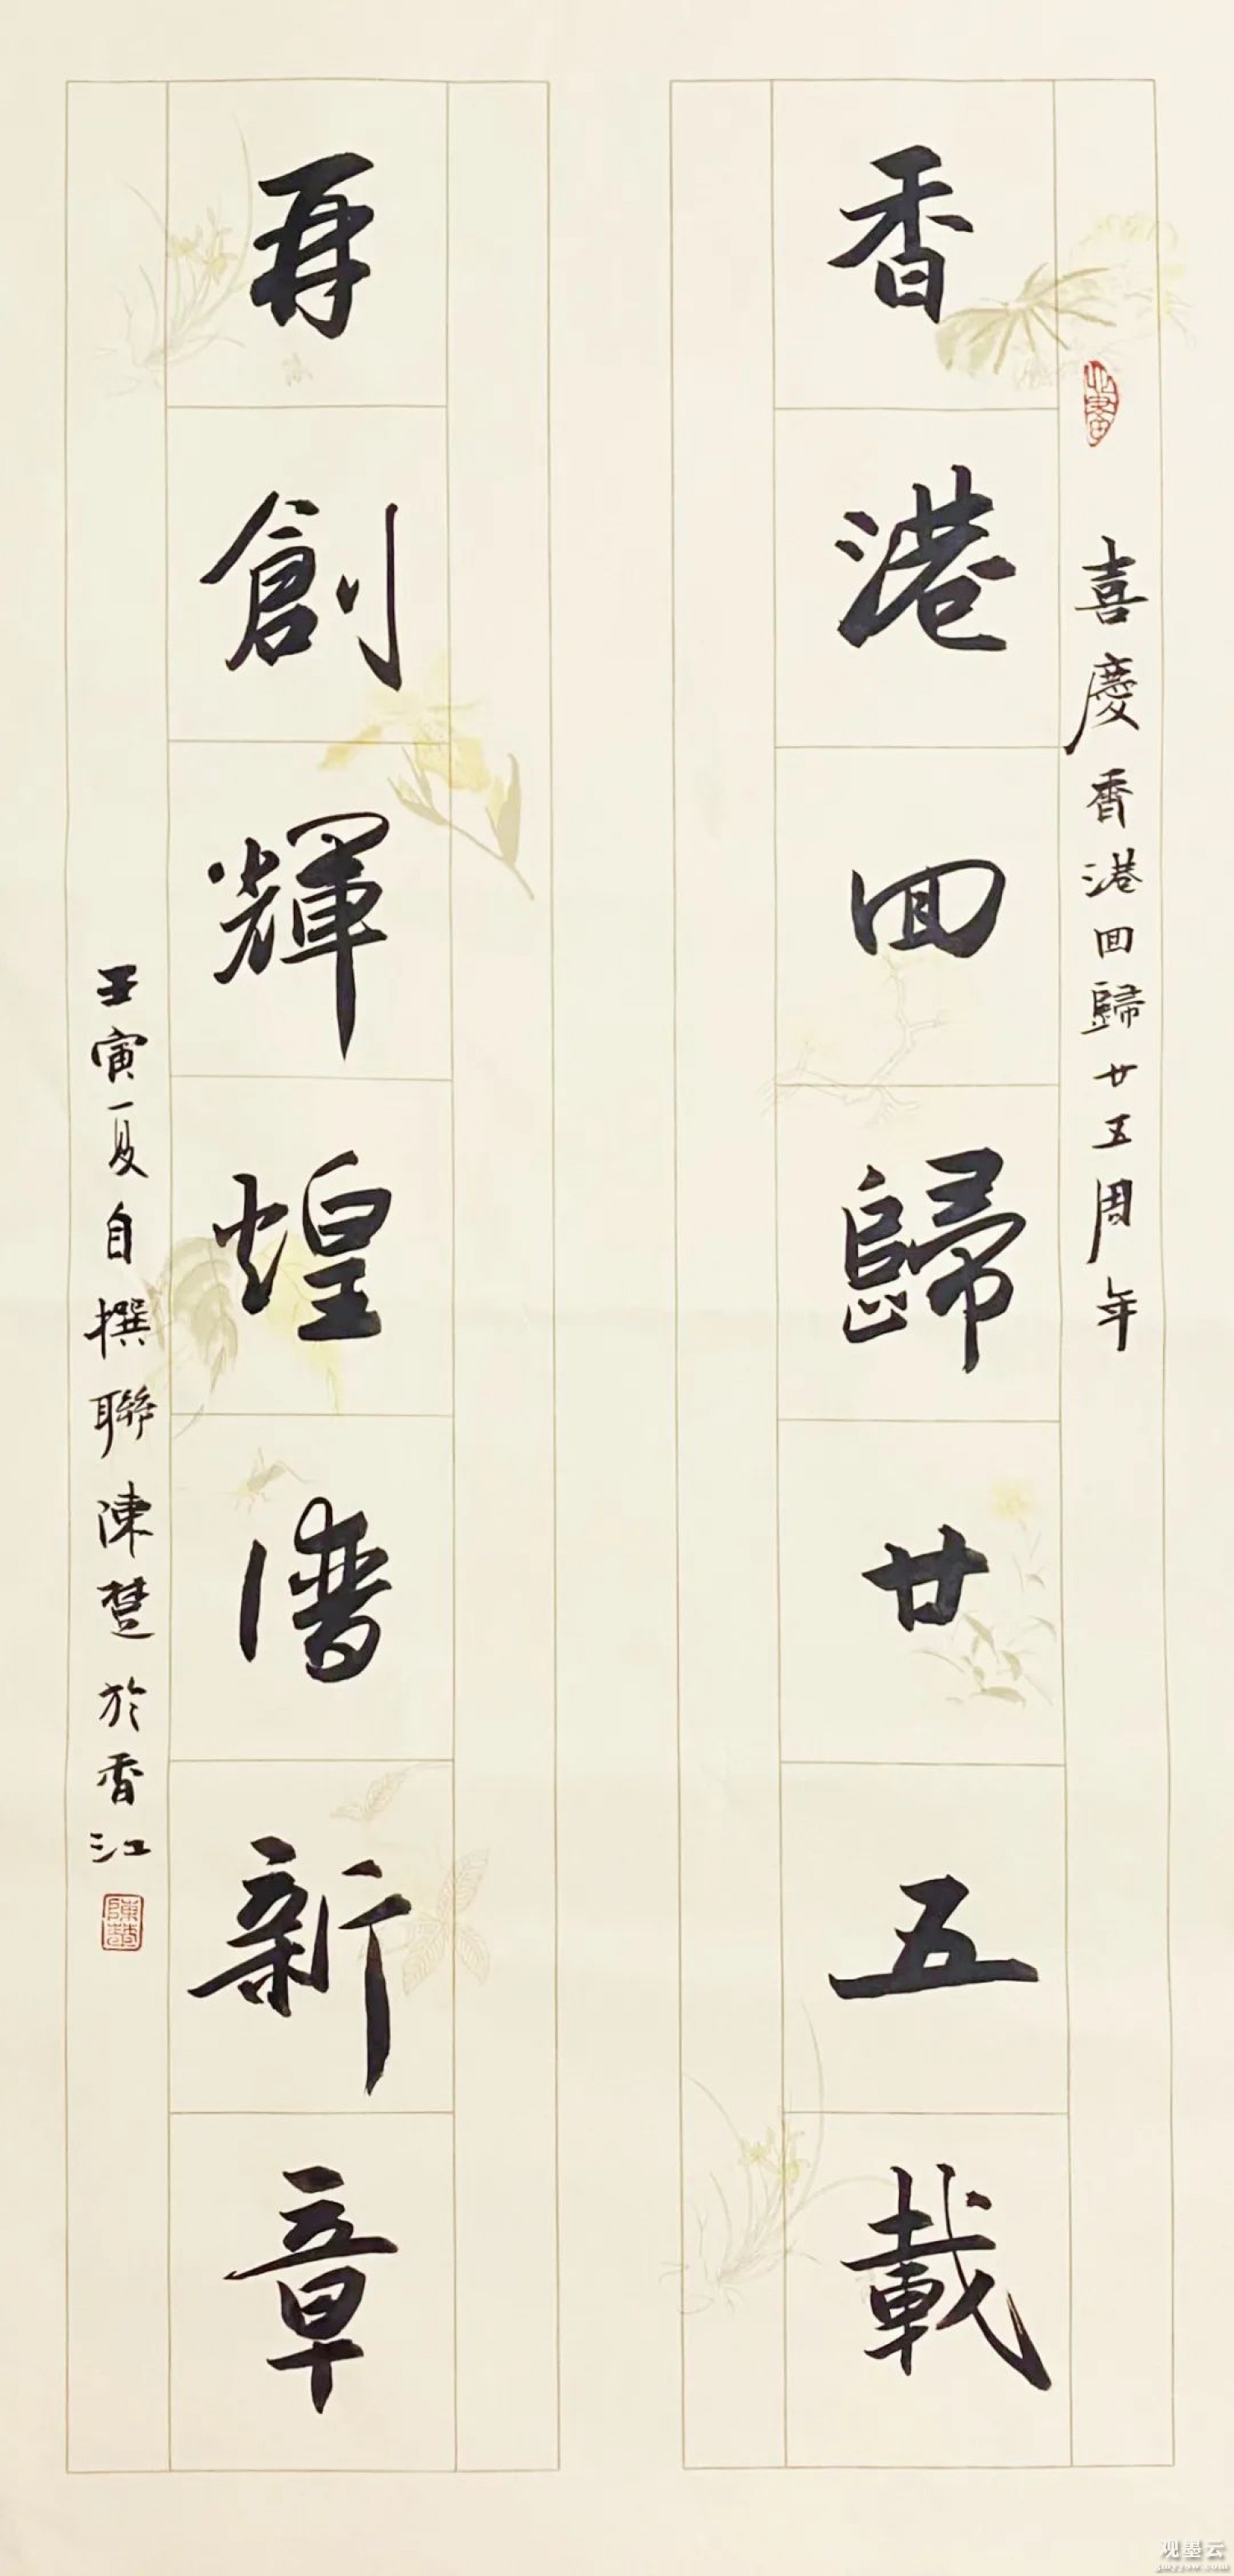 喜慶香港回歸廿五周年
香港回歸廿五載
再創輝煌譜新章
壬寅夏自撰聯陳楚於香江
陳楚
观墨云